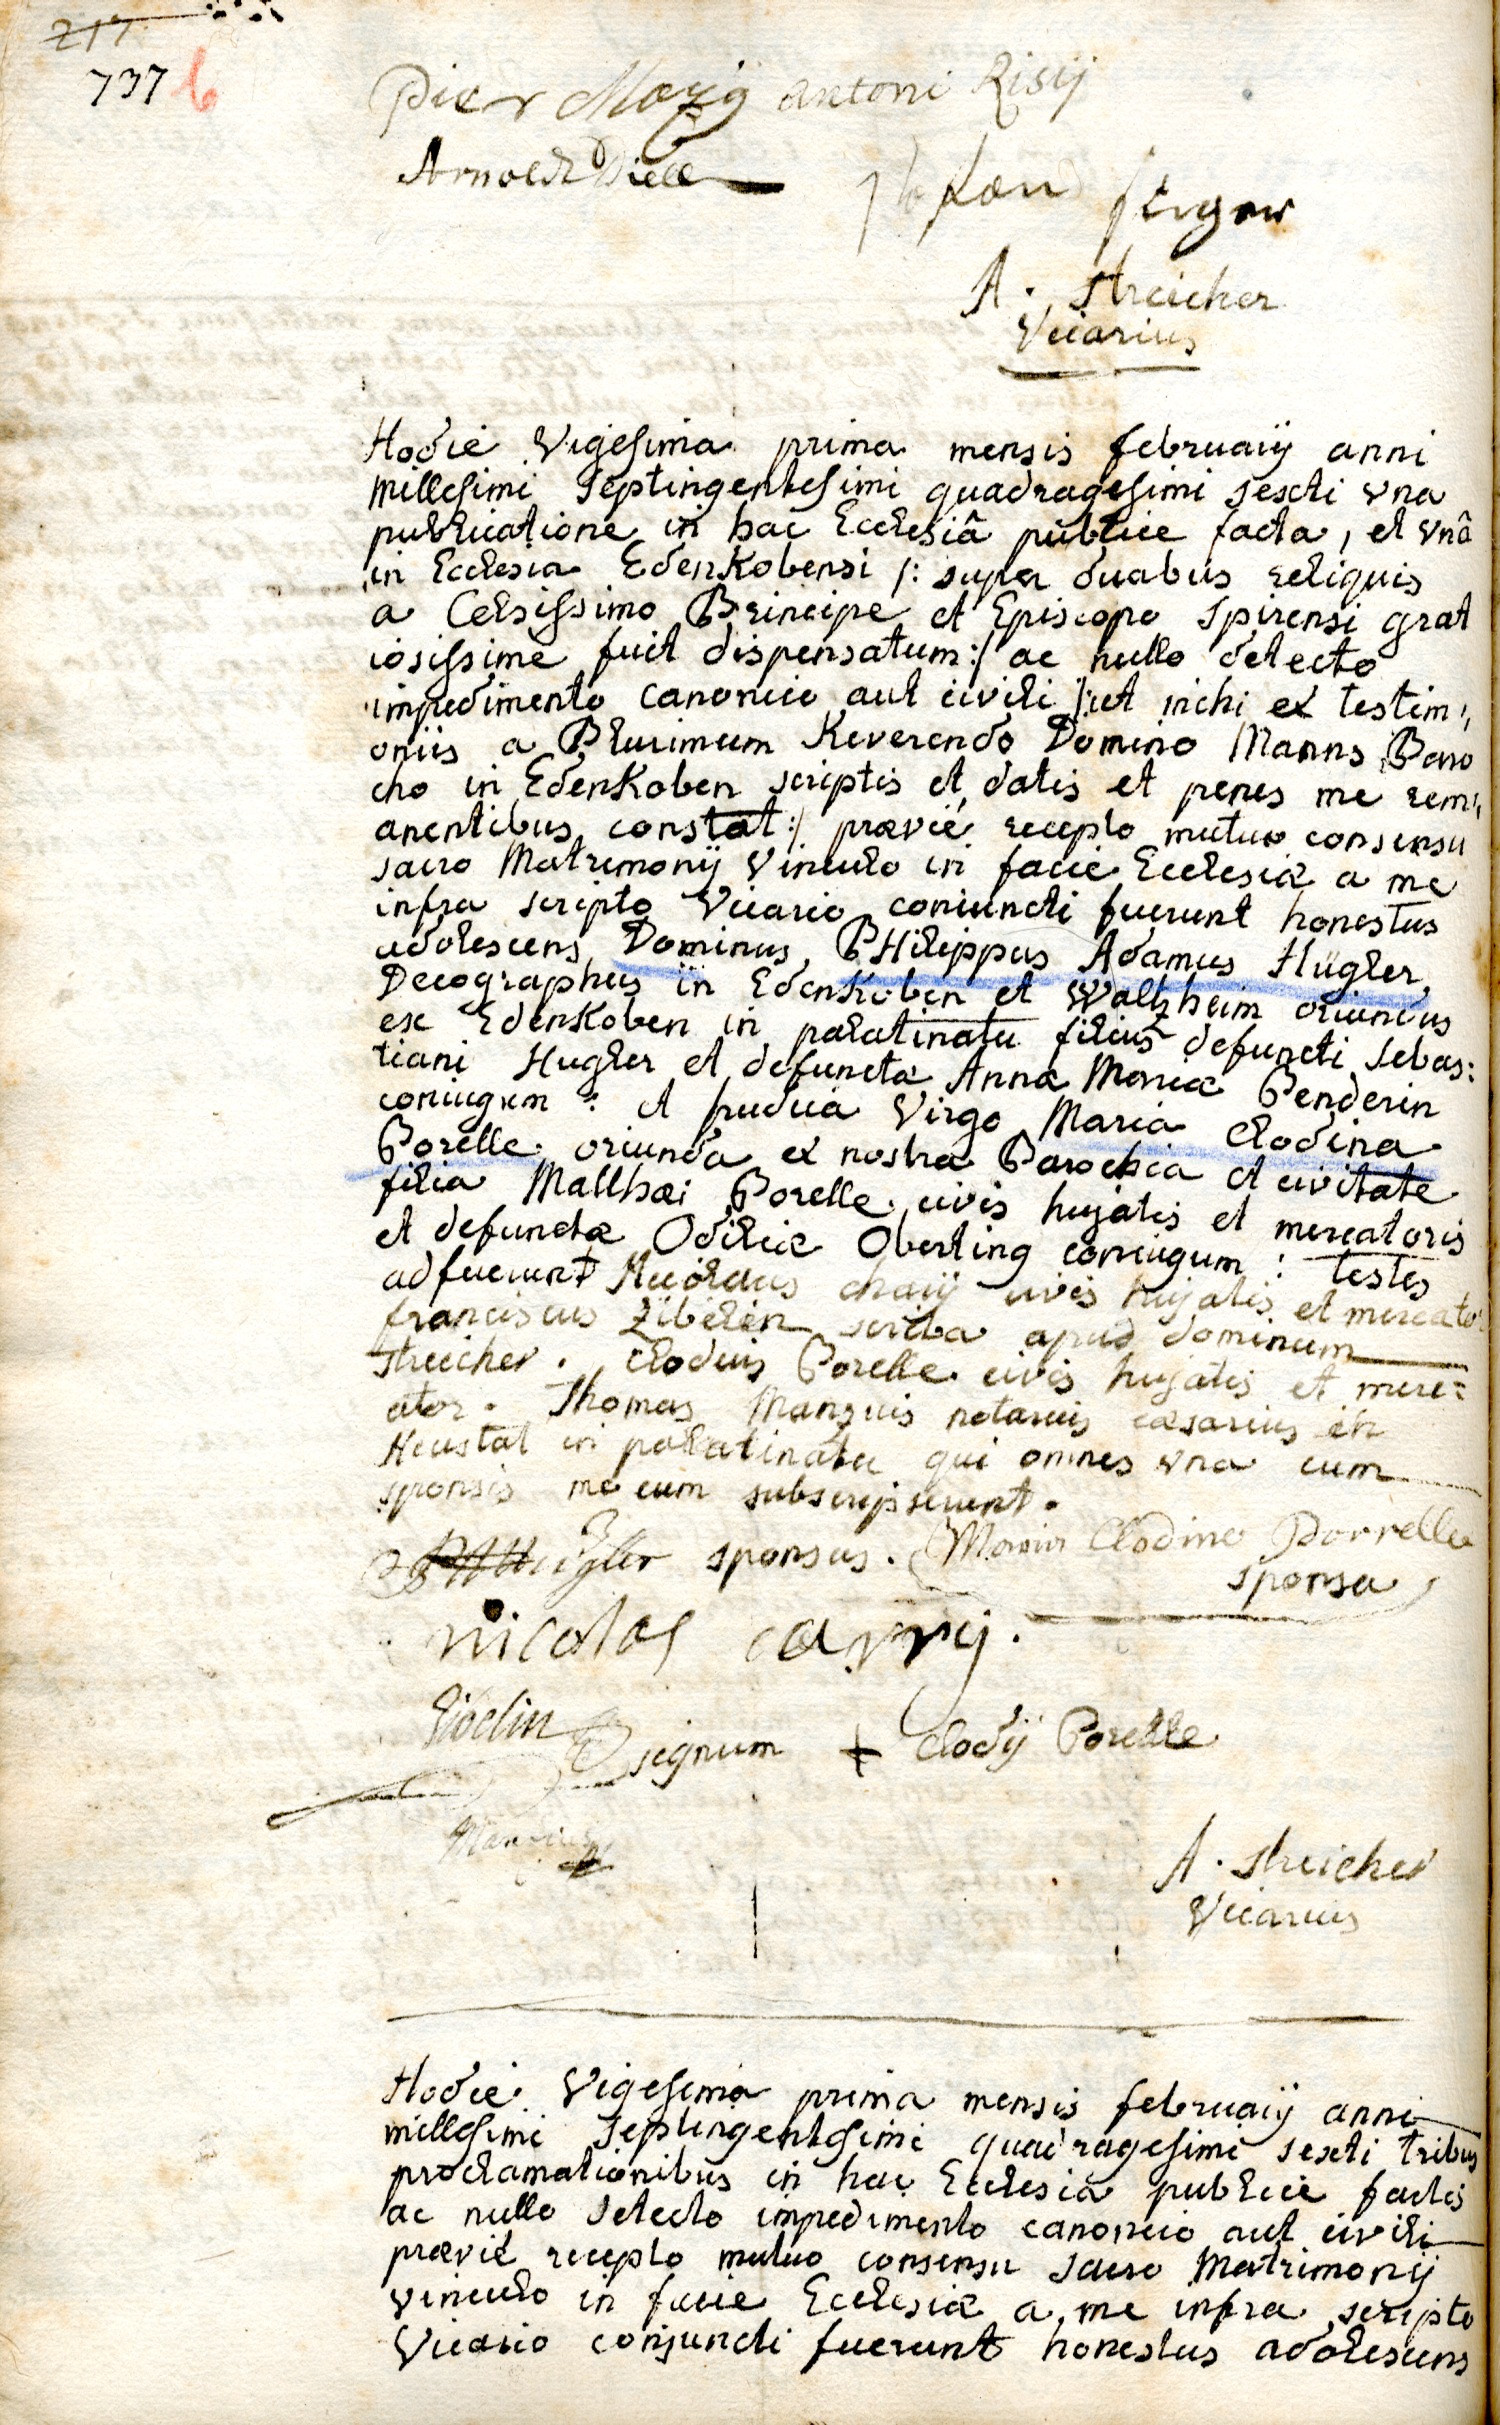 217
737 b
Pier Mozij antoni Risij
Arnoldt
jergow
A. streicher
Vicarius
Hodie Vigesima prima mensis februarij anni
millesimi septingentesimi quadragesimi sexti vna
publicatione in hac Ecclesiâ publice facta, et vnâ
in Ecclesia Edenkobensi /: super duabus reliquis
a Celsissimo Principe et Episcopo spirensi grat
iosissime fuit dispensatum :/ ac nullo detecto
impedimento canonico aut civili /: ut michi ex testim,,
oniis a Plurimum Reverendo Domino Manns Paro
cho in Edenkoben scriptis et datis et penes me rem,,
anentibus constat :/ prævié recepto mutuo consensu
sacro Matrimonij Vinculo in facie Ecclesiæ a me
infra scripto Vicario coniuncti fuerunt honestus
adolescens Dominus PHilippus Adamus Hugler,
Decographus in Edenkoben et Waltzheim oriundus
ex Edenkoben in palatinatu filius defuncti sebas:
tiani Hugler et defunctæ Annæ Mariæ Penderin
coniugum : et pudica Virgo Maria Clodina
Porelle oriunda ex nostra Parochia et civitate
filia Matthæi Porelle civis hujatis et mercatoris
et defunctæ Odiliæ Oberting coniugum : testes
adfuerunt Nicolaus charij civis hujatis et mercator
franciscus Zibelin scriba apud dominum
streicher. Clodius Porelle civis hujatis et merc=
ator. Thomas Manguis notarius cæsarius in
Neustat in palatinatu qui omnes vna cum
sponsis me cum subscripserunt.
Hügler sponsus. Maria Clodine Porrelle
sponsa
nicolas carrij.
signum + Clodij Porelle
A. streicher
Vicarius
Hodie Vigesima prima mensis februarij anni
millesimi septingentesimi quadragesimi sexti tribus
proclamationibus in hac Ecclesiâ publice factis
ac nullo detecto impedimento canonico aut civili
prævié recepto mutuo consensu sacro Matrimonij
vinculo in facie Ecclesiæ a me infra scripto
Vicario conjuncti fuerunt honestus adolescens